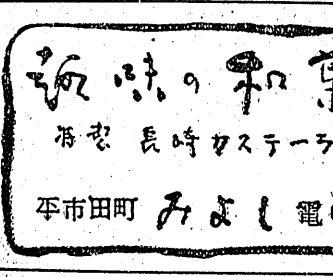 趣味の和菓
特製 長崎カステーラ
平市田町 みよし 電